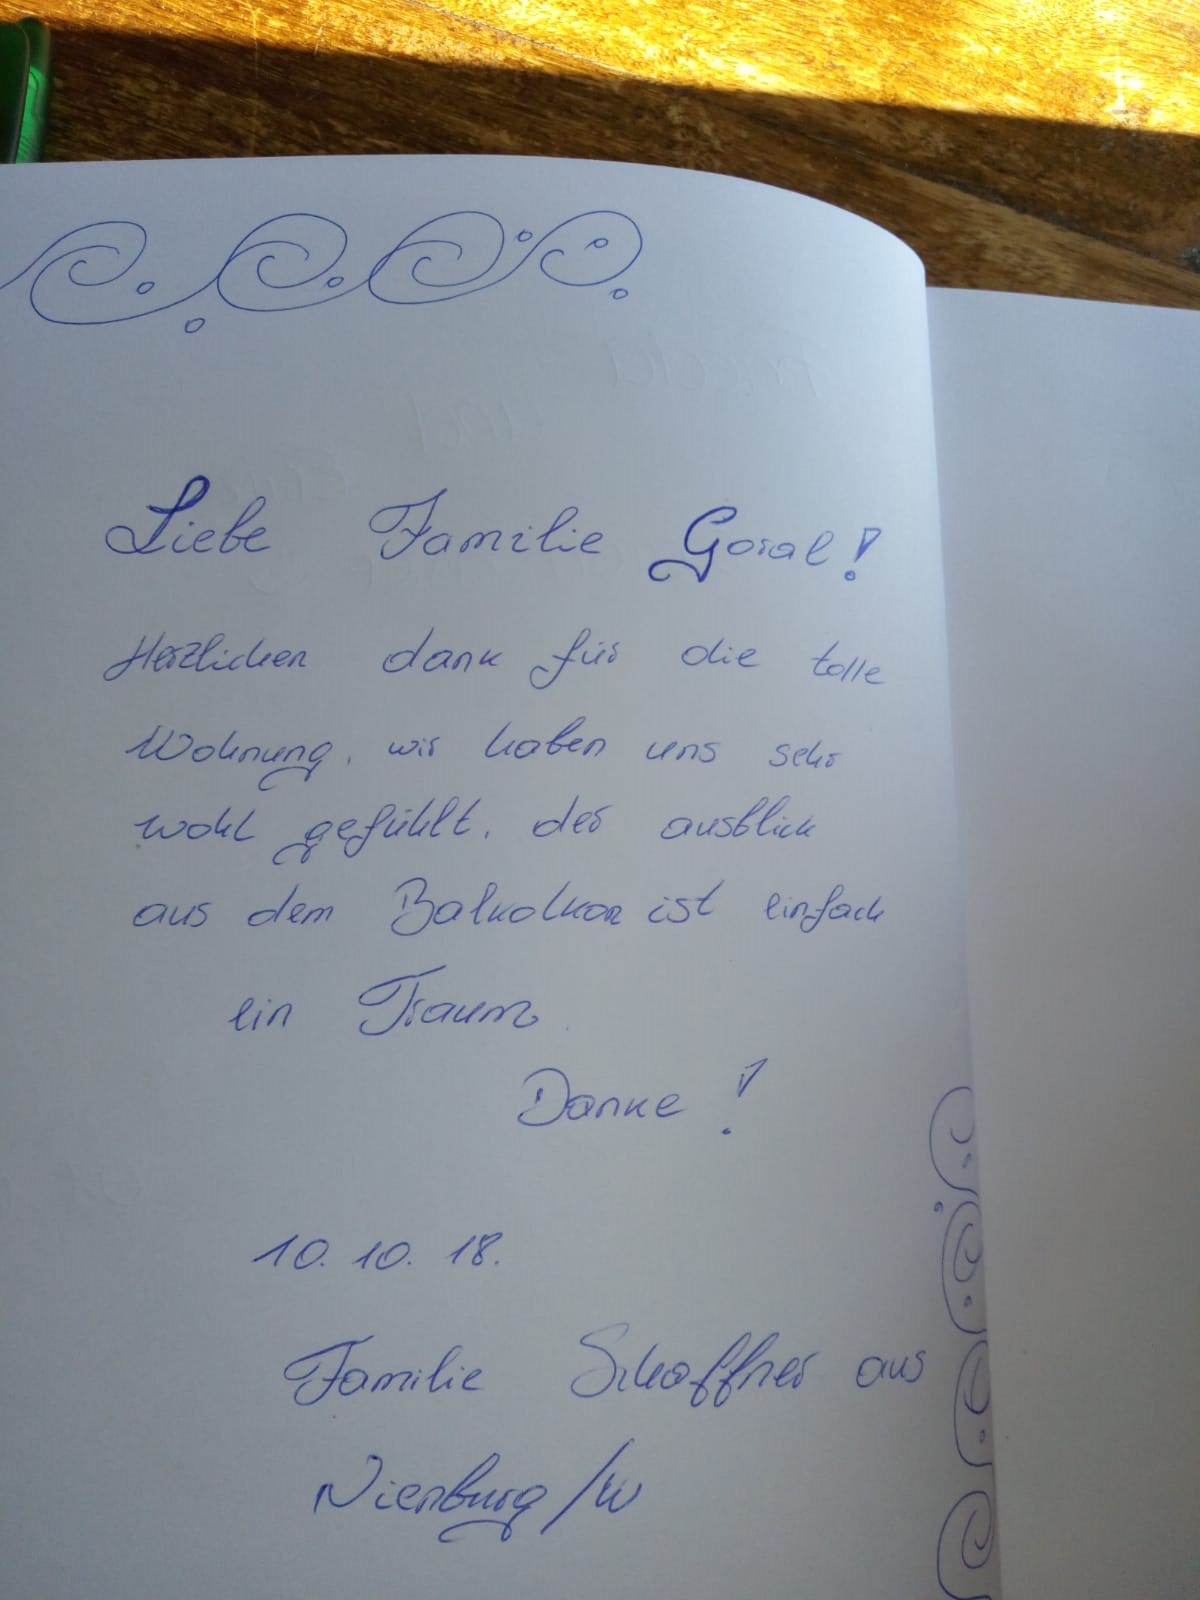 Liebe Familie Goral!
Herzlichen dank für die tolle
Wohnung, wir haben uns sehr
wohl gefühlt, der ausblick
aus dem Balkolkon ist einfach
ein Traum
Danke!
10. 10. 18.
Familie Schaffner aus
Nienburg/W